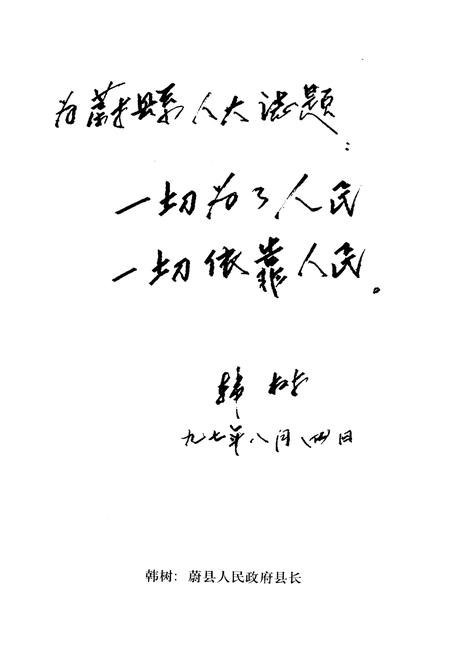 为蔚县人大志题：
一切为了人民
一切依靠人民。
韩树
九七年八月四日
韩树：蔚县人民政府县长